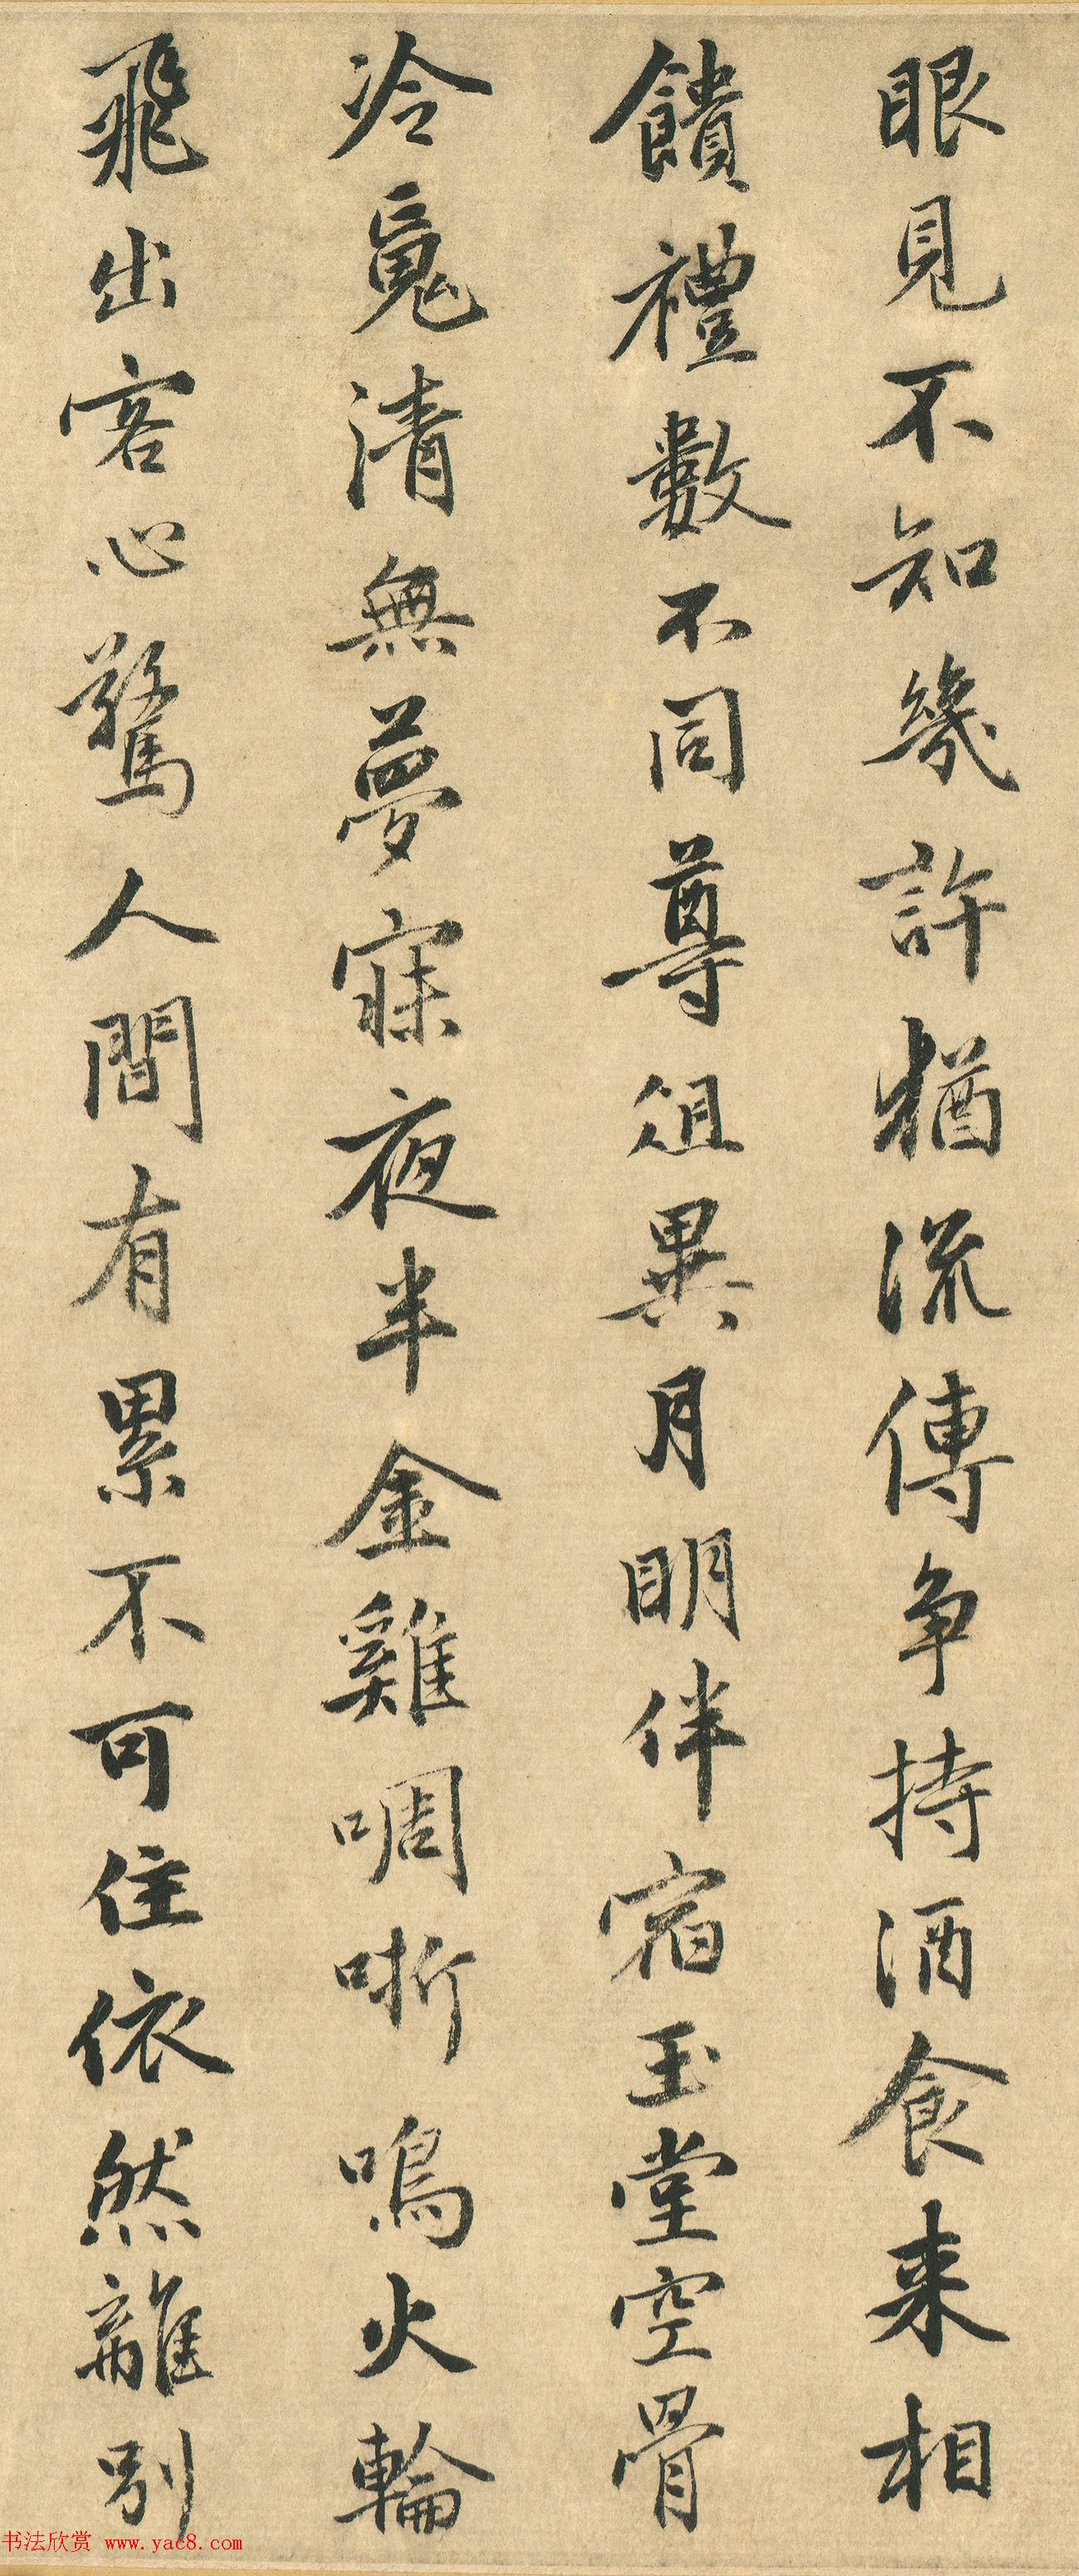 眼見不知幾許猶流傳争持酒食来相
饋禮數不同尊俎異月明伴宿玉堂空骨
冷䰟清無夢寐夜半金雞啁哳鳴火輪
飛出客心驚人間有累不可住依然離別
书法欣赏 www.yac8.com